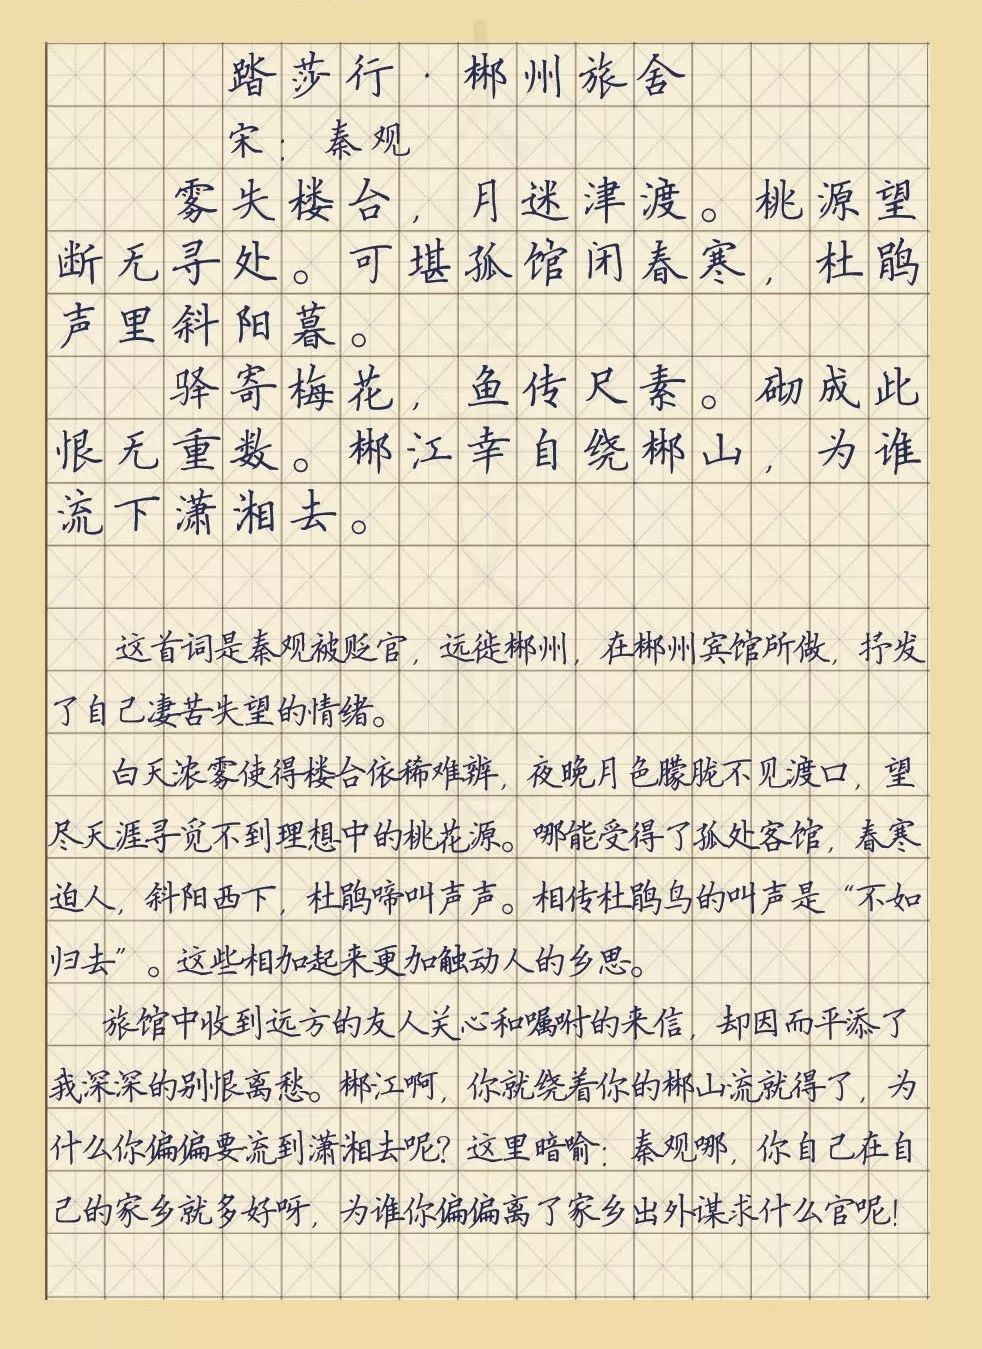 踏莎行·郴州旅舍
宋：秦观
雾失楼台，月迷津渡。桃源望
断无寻处。可堪孤馆闭春寒，杜鹃
声里斜阳暮。
驿寄梅花，鱼传尺素。砌成此
恨无重数。郴江幸自绕郴山，为谁
流下潇湘去。
这首词是秦观被贬官，远徙郴州，在郴州宾馆所做，抒发
了自己凄苦失望的情绪。
白天浓雾使得楼台依稀难辨，夜晚月色朦胧不见渡口，望
尽天涯寻觅不到理想中的桃花源。哪能受得了孤处客馆，春寒
迫人，斜阳西下，杜鹃啼叫声声。相传杜鹃鸟的叫声是“不如
归去”。这些相加起来更加触动人的乡思。
旅馆中收到远方的友人关心和嘱咐的来信，却因而平添了
我深深的别恨离愁。郴江啊，你就绕着你的郴山流就得了，为
什么你偏偏要流到潇湘去呢？这里暗喻：秦观哪，你自己在自
己的家乡就多好呀，为谁你偏偏离了家乡出外谋求什么官呢！